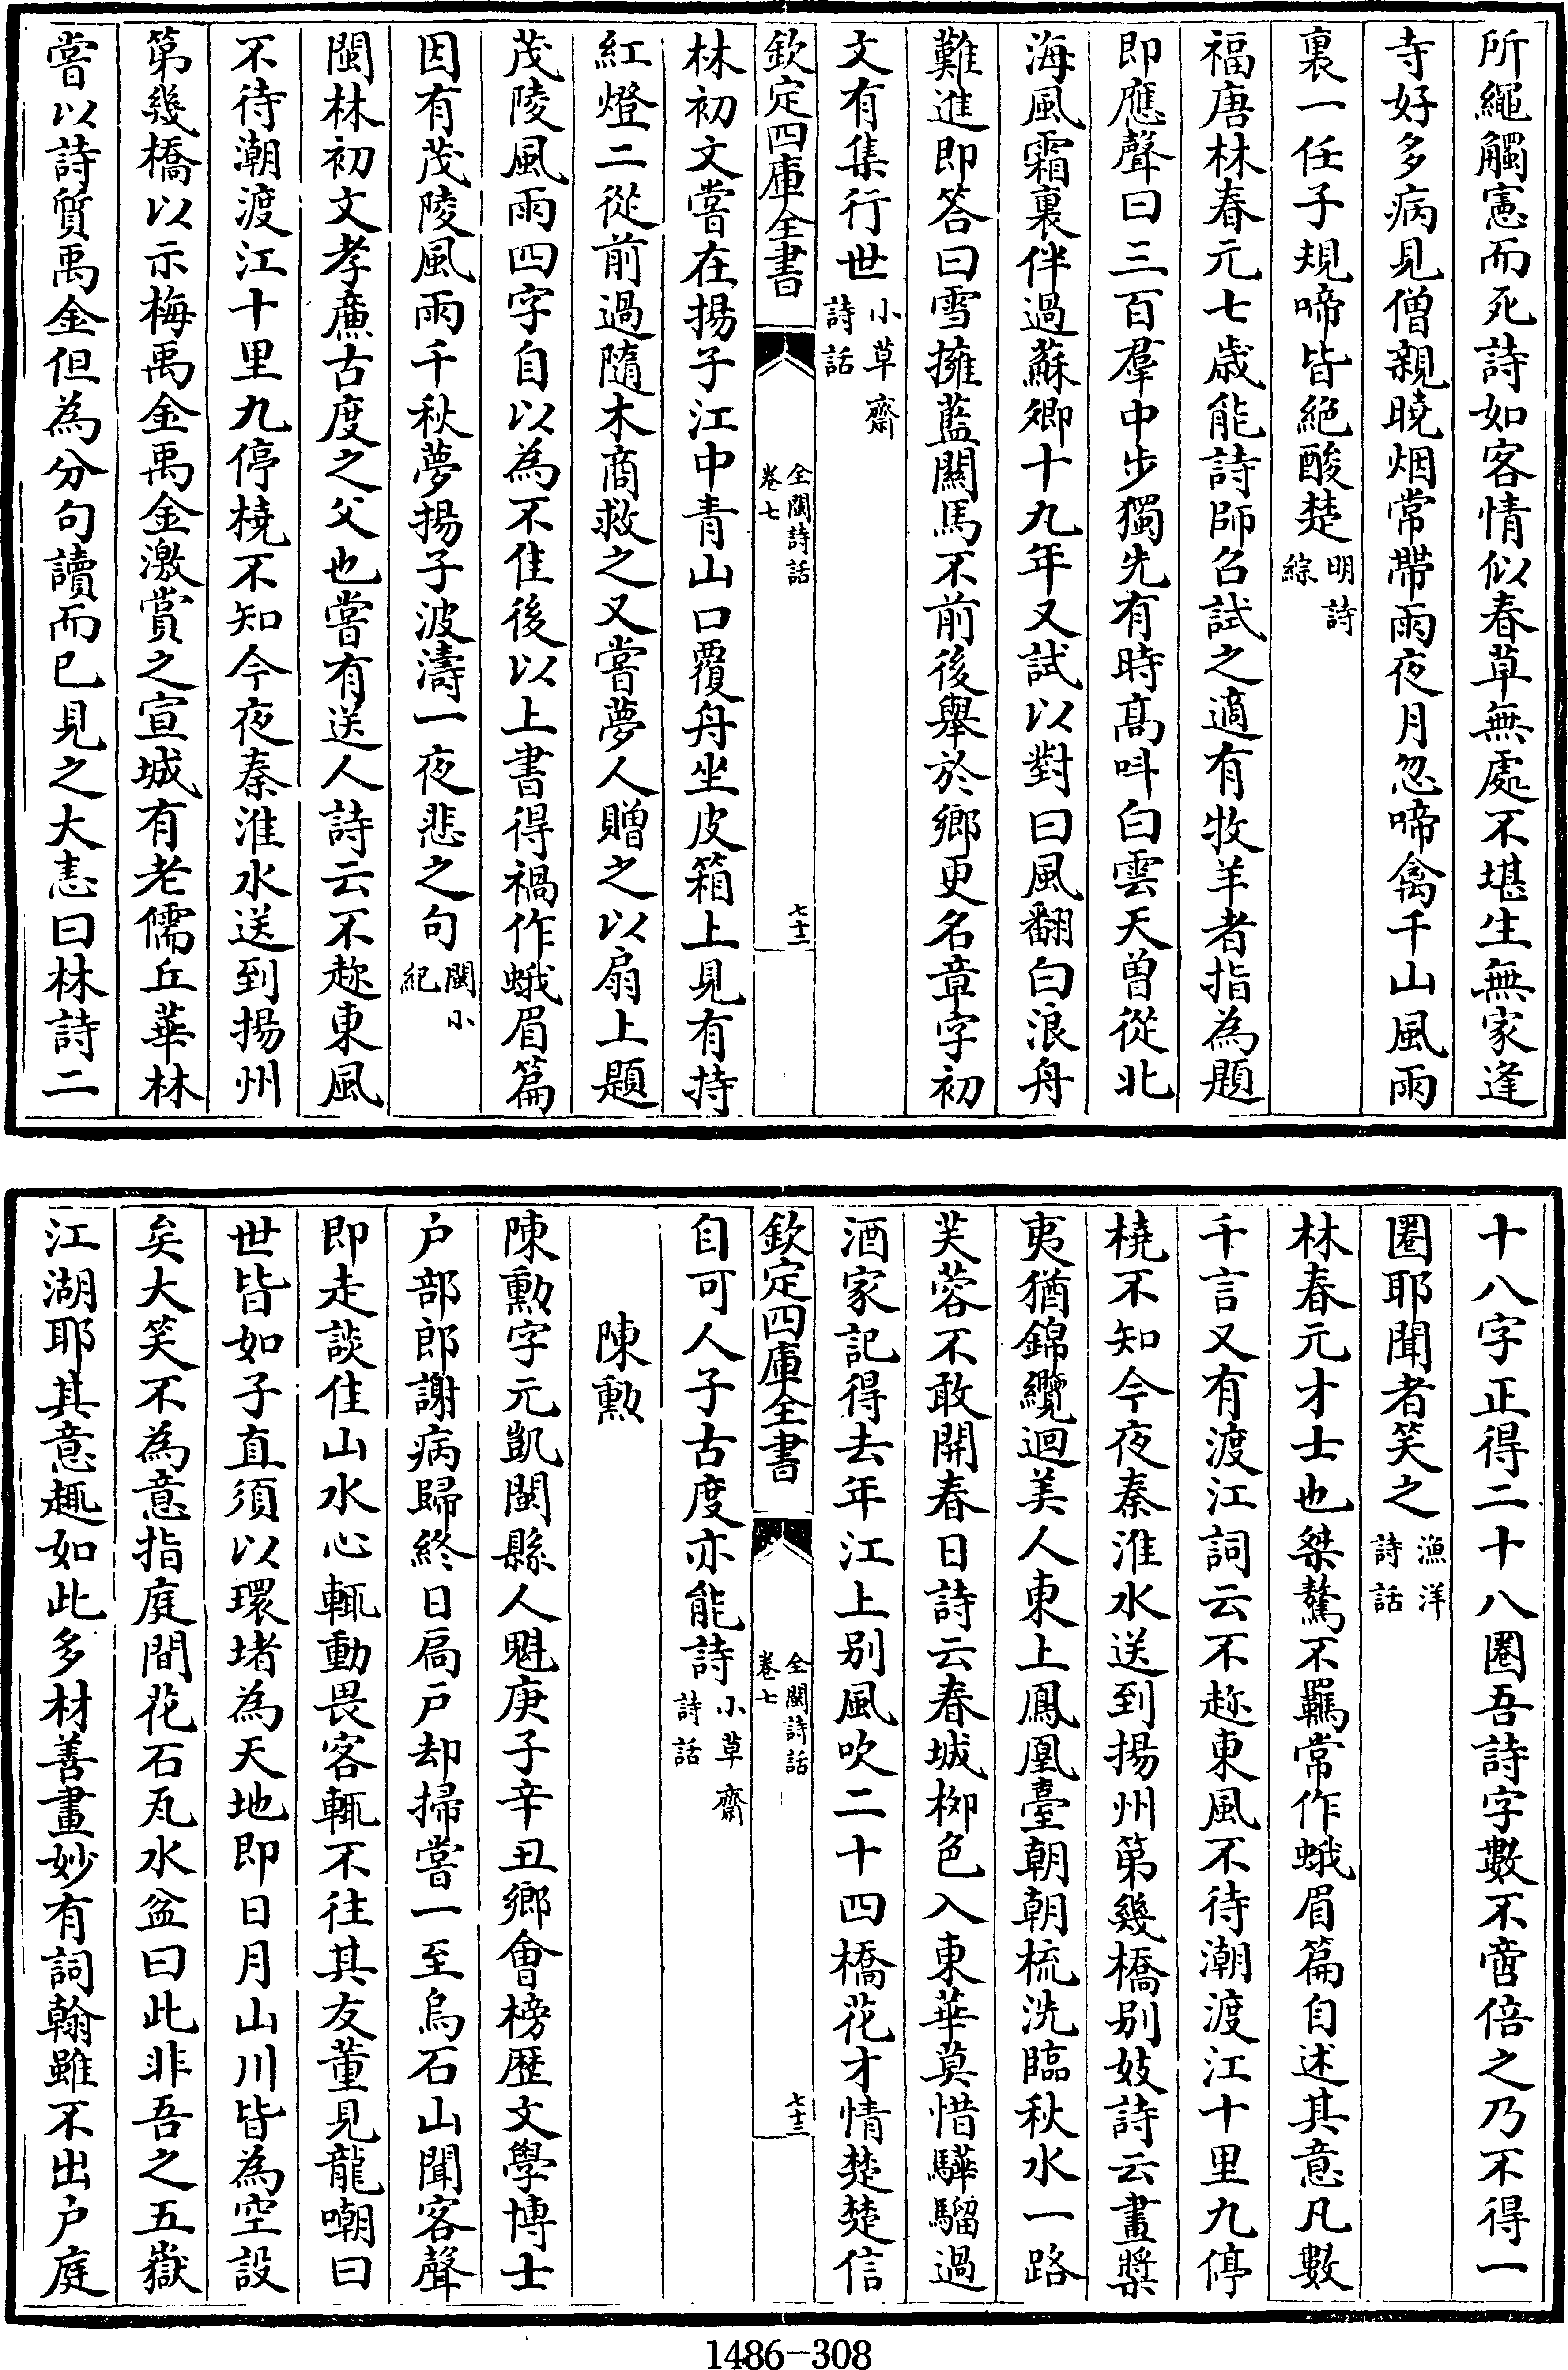 所繩觸憲而死詩如客情似春草無處不堪生無家逢
寺好多病見僧親曉烟常帶雨夜月忽啼禽千山風雨
裏一任子規啼皆絶酸楚明詩綜
福唐林春元七歲能詩師名試之適有牧羊者指為題
即應聲曰三百羣中步獨先有時髙呌白雲天曽從北
海風霜裏伴過蘇卿十九年又試以對曰風翻白浪舟
難進即答曰雪擁藍闗馬不前後舉於鄉更名章字初
文有集行世小草齋詩話
欽定四庫全書 全閩詩話卷七 七十二
林初文嘗在揚子江中青山口覆舟坐皮箱上見有持
紅燈二從前過隨木商救之又嘗夢人贈之以扇上題
茂陵風雨四字自以為不佳後以上書得禍作蛾眉篇
因有茂陵風雨千秋夢揚子波濤一夜悲之句閩小紀
閩林初文孝亷古度之父也嘗有送人詩云不趂東風
不待潮渡江十里九停橈不知今夜秦淮水送到揚州
第幾橋以示梅禹金禹金激賞之宣城有老儒丘華林
嘗以詩質禹金但為分句讀而已見之大恚曰林詩二
十八字正得二十八圏吾詩字數不啻倍之乃不得一
圏耶聞者笑之漁洋詩話
林春元才士也桀驁不羈常作蛾眉篇自述其意凡數
千言又有渡江詞云不趂東風不待潮渡江十里九停
橈不知今夜秦淮水送到揚州第幾橋别妓詩云畫槳
夷猶錦纜迴美人東上鳳凰臺朝朝梳洗臨秋水一路
芙蓉不敢開春日詩云春城栁色入東華莫惜驊騮過
酒家記得去年江上别風吹二十四橋花才情楚楚信
欽定四庫全書 全閩詩話卷七 七十三
自可人子古度亦能詩小草齋詩話
陳勲
陳勲字元凱閩縣人魁庚子辛丑鄉會榜歴文學博士
户部郎謝病歸終日扃户却掃嘗一至烏石山聞客聲
即走談佳山水心輒動畏客輒不往其友董見龍嘲曰
世皆如子直須以環堵為天地即日月山川皆為空設
矣大笑不為意指庭間花石瓦水盆曰此非吾之五嶽
江湖耶其意趣如此多材善畫妙有詞翰雖不出户庭
1486-308